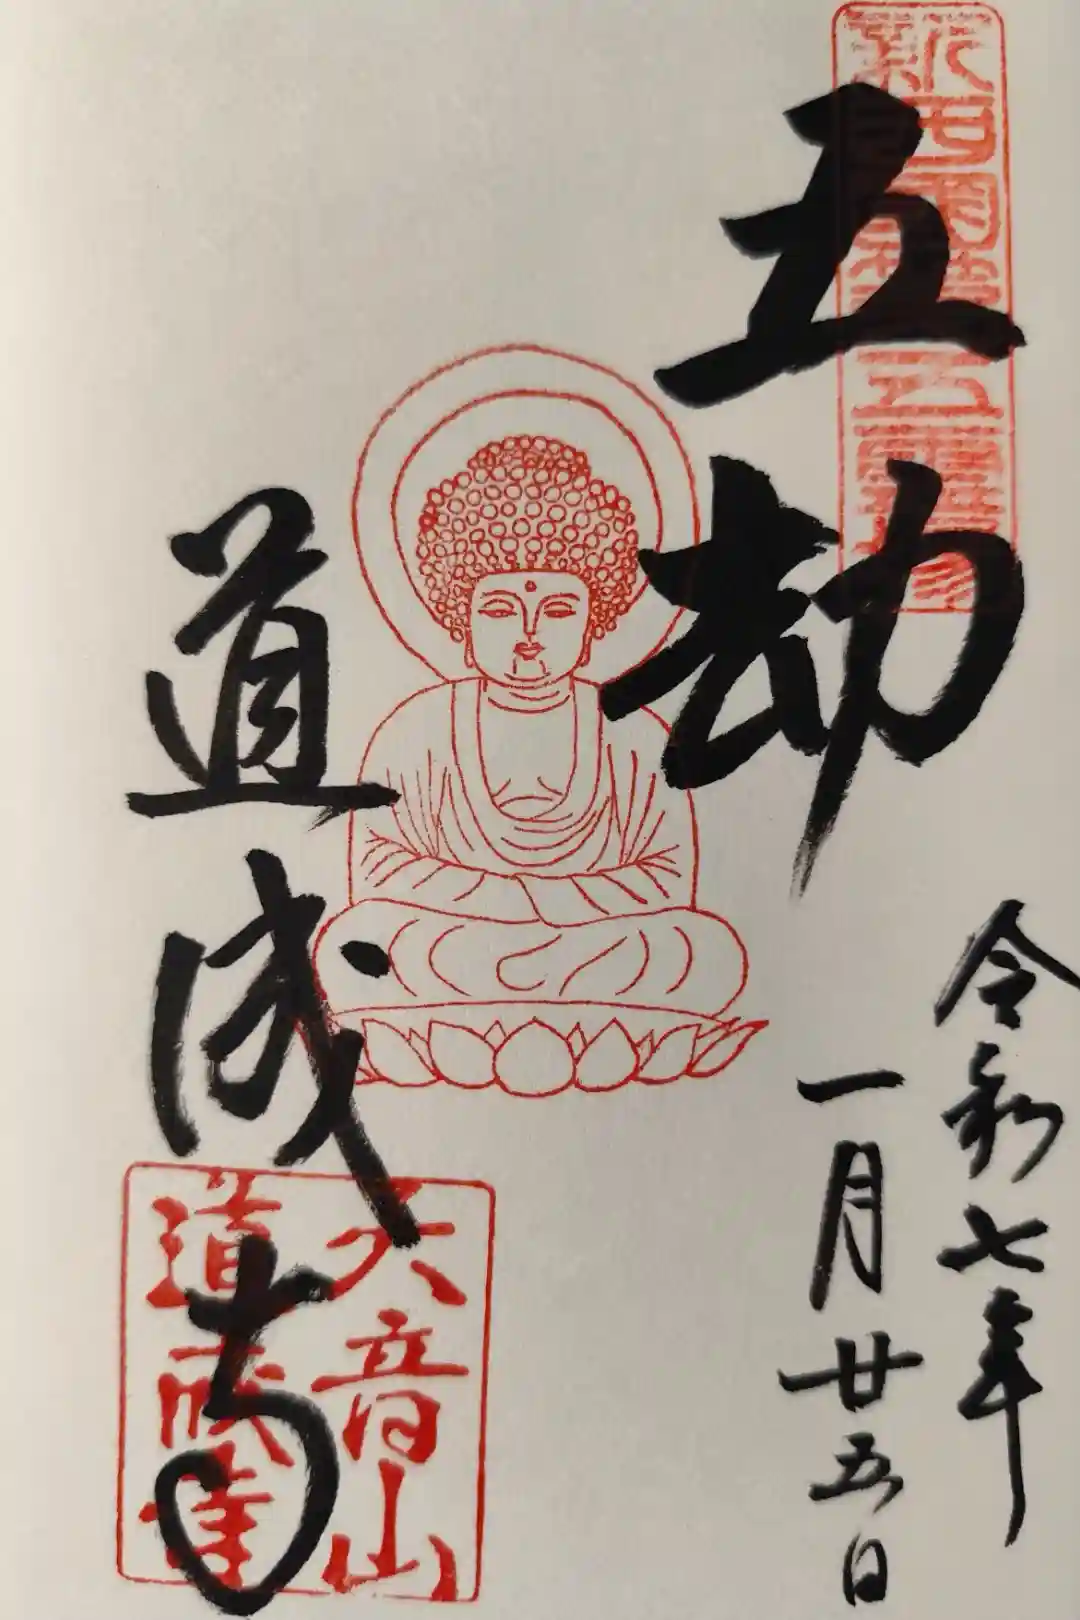 五劫
令和七年
一月廿五日
道成寺
天音山
道成寺